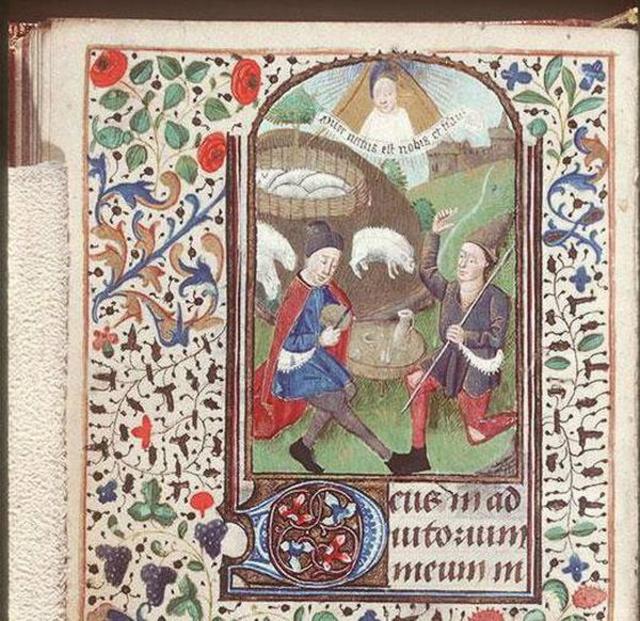 puer natus est nobis et filiu
Deus in ad
iutorium
meum in